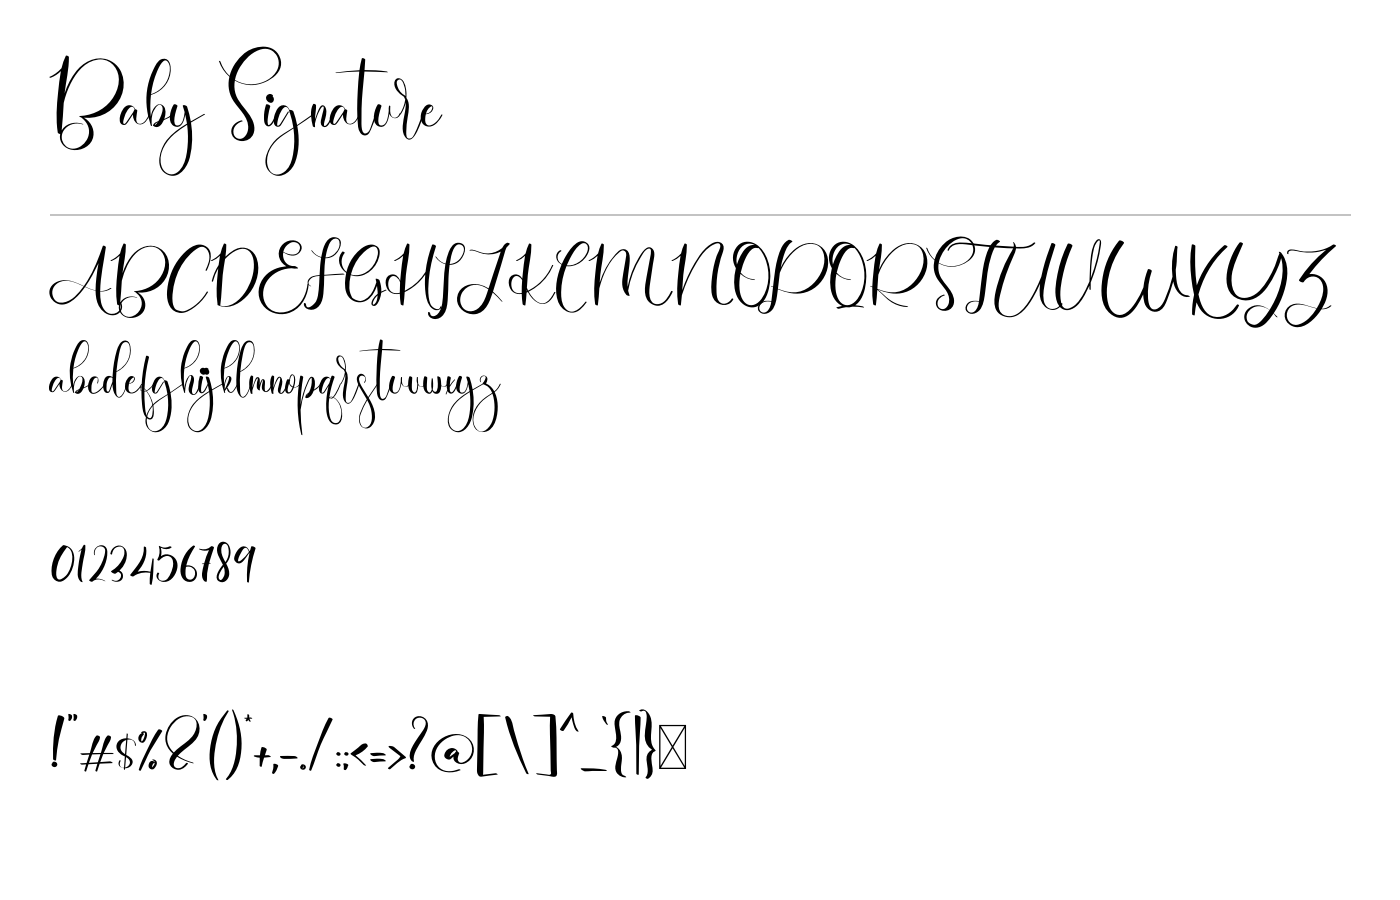 Baby Signature
ABCDEFGHIJKLMNOPQRSTUVWXYZ
abcdefghijklmnopqrstuvwxyz
0123456789
!"#$%&'()*+,-./:;<=>?@[\]^_`{|}